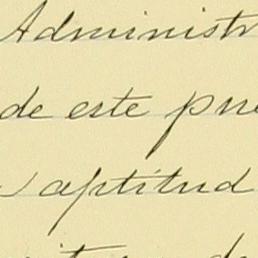 Administr
de este pue
aptitud